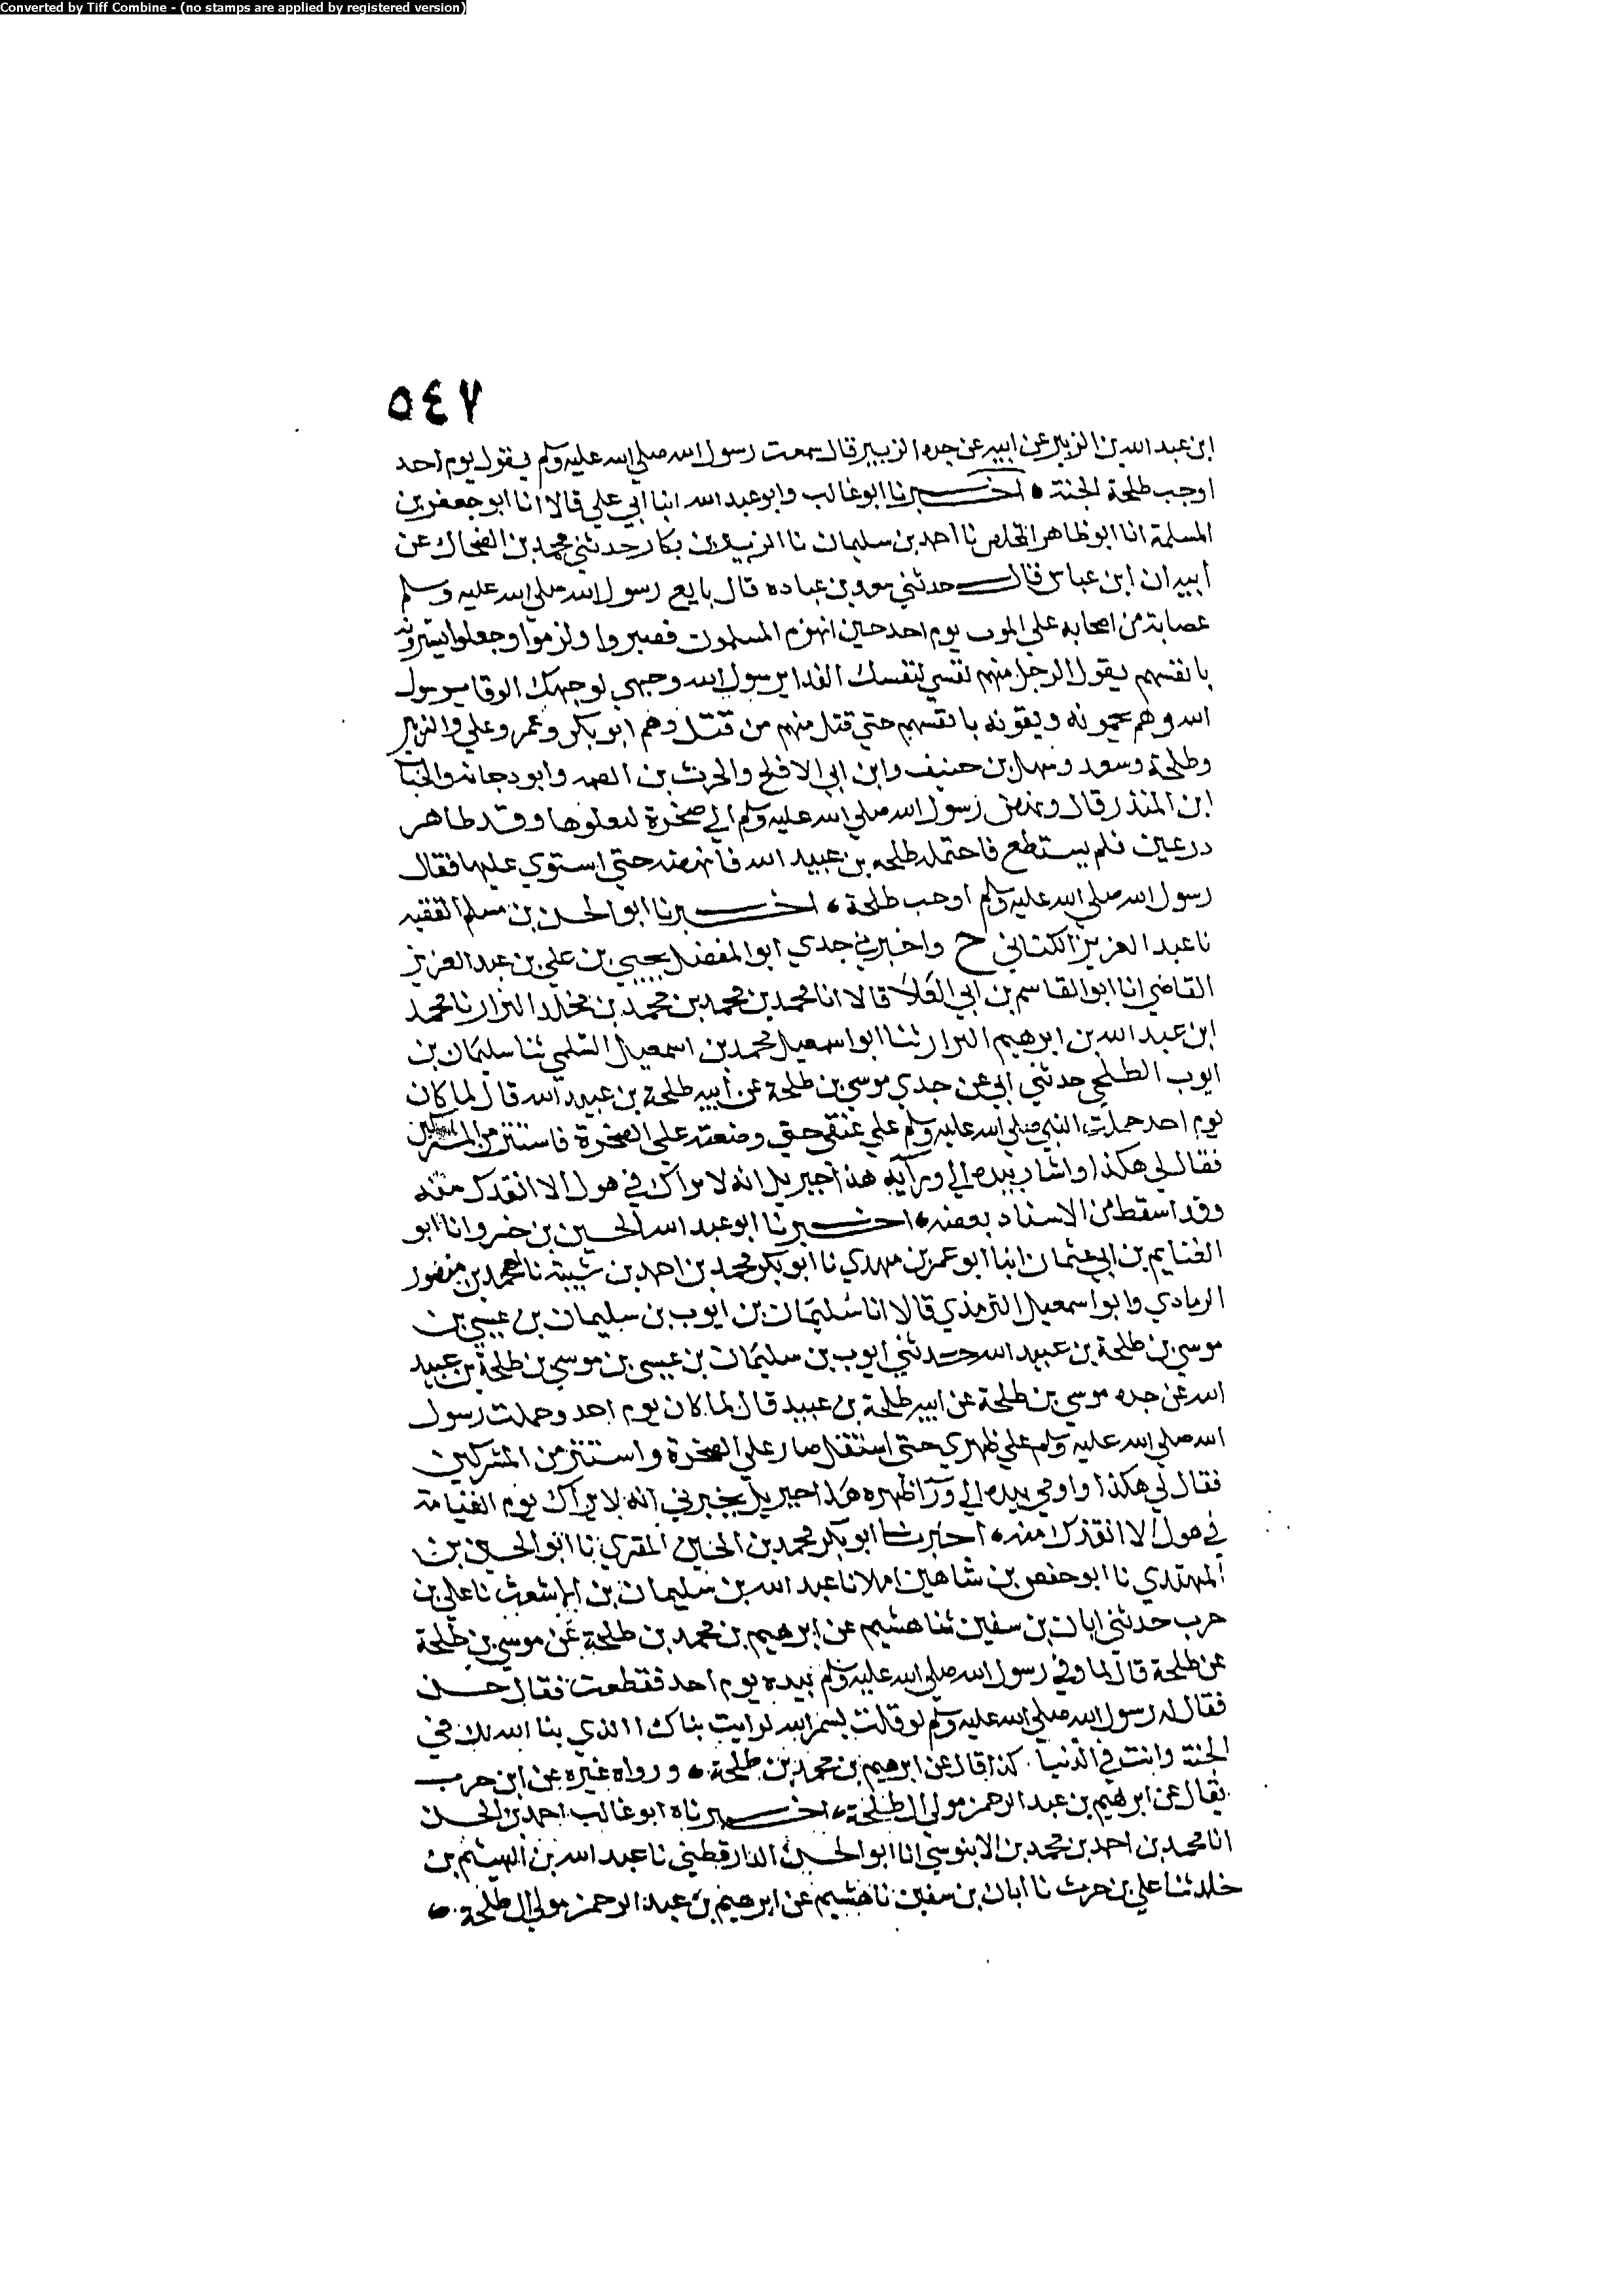 Converted by Tiff Combine - (no stamps are applied by registered version)
٥٤٧
ابن عبد الله بن الزبير عن ابيه عن جده الزبير قال سمعت رسول الله صلي الله عليه وسلم يقول يوم احد
اوجب طلحة الجنة • اخبرنا ابو غالب وابو عبد الله ابنا ابي علي قالا انا ابو جعفر بن
المسلمة انا ابو طاهر المخلص نا احمد بن سليمان نا الزبير بن بكار حدثني محمد بن الضحاك عن
ابيه ان ابن عباس قال حدثني سعد بن عباده قال بايع رسول الله صلي الله عليه وسلم
عصابة من اصحابه علي الموت يوم احد حين انهزم المسلمون فصبروا ولزموا وجعلوا يسترونه
بانفسهم يقول الرجل منهم نفسي لنفسك الفدا يرسول الله وجهي لوجهك الوقا يرسول
الله وهم يحمونه ويقونه بانفسهم حتي قتل منهم من قتل وهم ابو بكر وعمر وعلي والزبير
وطلحة وسعد وسهل بن حنيف وابن ابي الافلح والحرث بن الصمه وابو دجانه والحباب
ابن المنذر قال ونهض رسول الله صلي الله عليه وسلم الي صخرة ليعلوها وقد ظاهر
درعين فلم يستطع فاحتمله طلحه بن عبيد الله فانهضه حتي استوي عليها فقال
رسول الله صلي الله عليه وسلم اوجب طلحة • اخبرنا ابو الحسن بن مسلم الفقيه
نا عبد العزيز الكتاني ح واخبرني جدي ابو المفضل يحيي بن علي بن عبد العزيز
القاضي انا ابو القاسم بن ابي العلا قالا انا محمد بن محمد بن محمد بن مخلد البزار نا محمد
ابن عبد الله بن ابرهيم البزار ثنا ابو اسمعيل محمد بن اسمعيل السلمي ثنا سليمان بن
ايوب الطلحي حدثني ابي عن جدي موسي بن طلحة عن ابيه طلحة بن عبيد الله قال لما كان
يوم احد حملت النبي صلي الله عليه وسلم علي عنقي حتي وضعته علي الصخرة فاستتر من المشركين
فقال لي هكذا واشار بيده الي ورآيه هذا جبريل انه لا يراك في هول الا انقدك منه
وقد اسقط من الاسناد بعضه • اخبرنا ابو عبد الله الحسين بن خسرو انا ابو
الغنايم بن ابي عثمان ابنا ابو عمر بن مهدي نا ابو بكر محمد بن احمد بن شيبة نا احمد بن منصور
الرمادي وابو اسمعيل الترمذي قالا انا سليمان بن ايوب بن سليمان بن عيسي بن
موسي بن طلحة بن عبيد الله حدثني ايوب بن سليمان بن عيسى بن موسي بن طلحة بن عبيد
الله عن جده موسي بن طلحة عن ابيه طلحة بن عبيد قال لما كان يوم احد وحملت رسول
الله صلي الله عليه وسلم علي ظهري حتى استقل صار علي الصخرة واستتر من المشركين
فقال لي هكذا واومي بيده الي ورآ ظهره هذا جبريل يخبرني انه لا يراك يوم القيامة
في هول الا انقذك منه • اخبرنا ابو بكر محمد بن الحسين المقري نا ابو الحسين بن
المهتدي نا ابو حفص بن شاهين املا نا عبد الله بن سليمان بن الاشعث نا علي بن
حرب حدثني ابان بن سفين ثنا هشيم عن ابرهيم بن محمد بن طلحة عن موسي بن طلحة
عن طلحة قال لما وقي رسول الله صلي الله عليه وسلم بيده يوم احد فقطعت فقال حسن
فقال له رسول الله صلي الله عليه وسلم لو قلت بسم الله لرايت بناك الذي بنا الله لك في
الجنة وانت في الدنيا . كذا قال عن ابرهيم بن محمد بن طلحة • ورواه غيره عن ابن حرب
يقال عن ابرهيم بن عبد الرحمن مولي ال طلحة • اخبرناه ابو غالب احمد بن الحسن
انا محمد بن احمد بن محمد بن الابنوسي انا ابو الحسن الدارقطني نا عبد الله بن الهيثم بن
خلد ثنا علي بن حرث نا ابان بن سفين نا هشيم عن ابرهيم بن عبد الرحمن مولي ال طلحة •